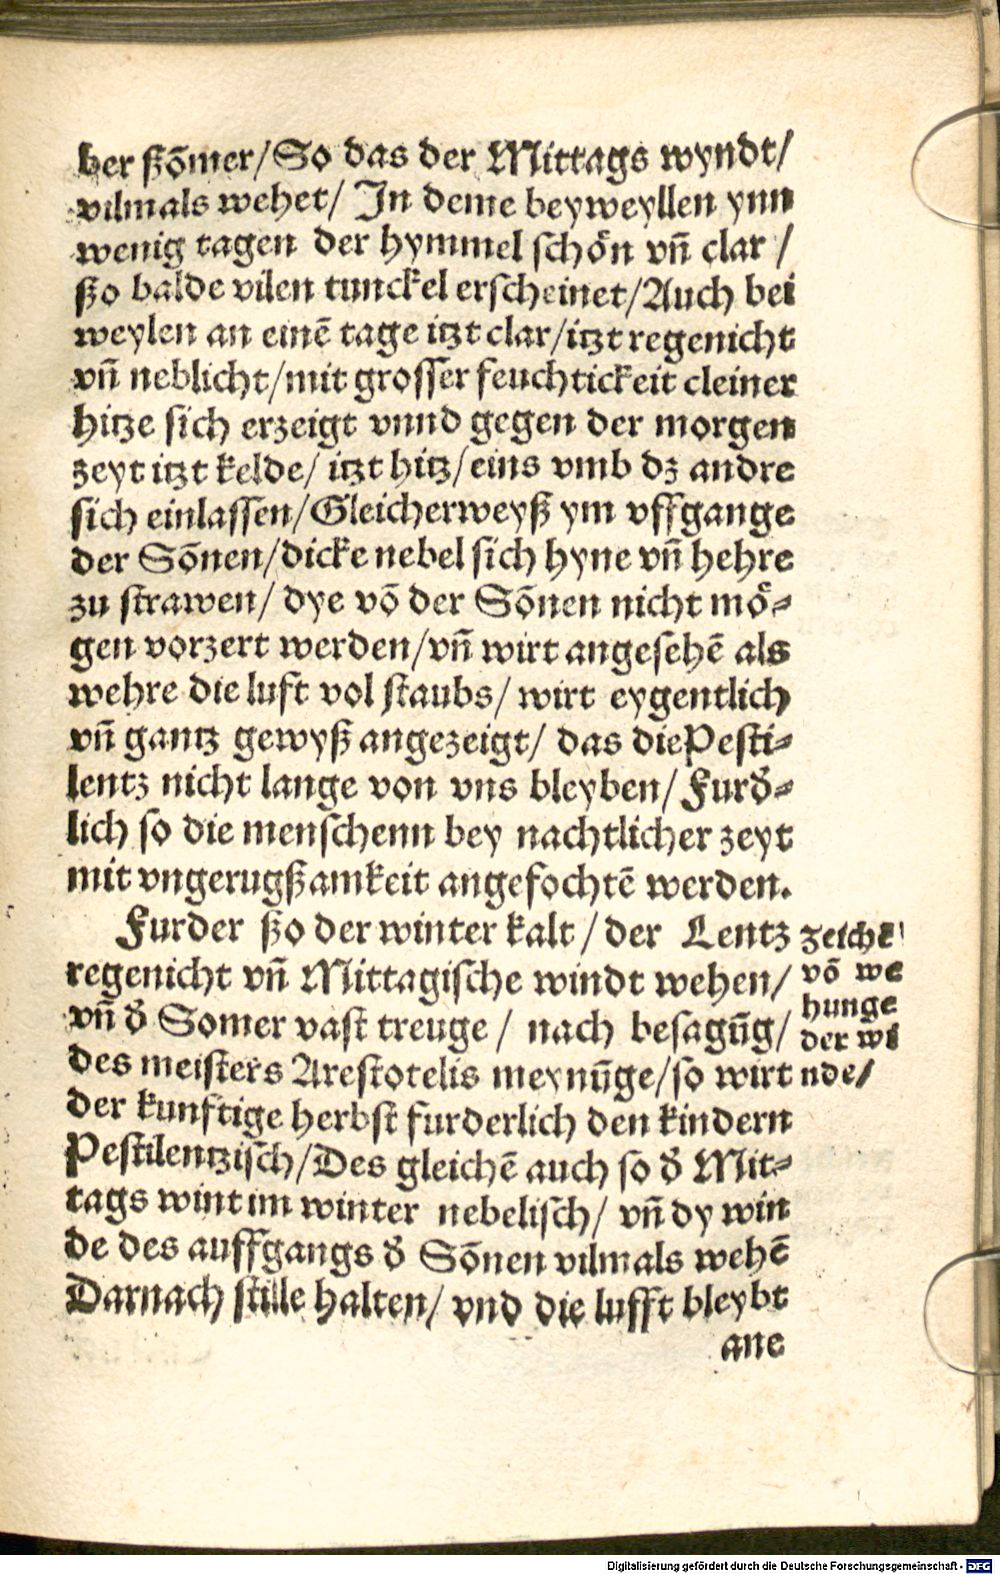 ber ßõmer/So das der Mittags wyndt/
vilmals wehet/ In deme beyweyllen ynn
wenig tagen der hymmel schön vñ clar /
ßo balde vilen tunckel erscheinet/Auch bei
weylen an einẽ tage itzt clar/itzt regenicht
vñ neblicht/mit grosser feuchtickeit cleiner
hitze sich erzeigt vnnd gegen der morgen
zeyt itzt kelde/ itzt hitz/eins vmb dz andre
sich einlassen/Gleicherweyß ym vffgange
der Sõnen/dicke nebel sich hyne vñ hehre
zu strawen/ dye võ der Sõnen nicht mö⸗
gen vorzert werden/vñ wirt angesehẽ als
wehre die luft vol staubs/ wirt eygentlich
vñ gantz gewyß angezeigt/ das diePesti⸗
lentz nicht lange von vns bleyben/ Furd̕⸗
lich so die menschenn bey nachtlicher zeyt
mit vngerugßamkeit angefochtẽ werden.
Furder ßo der winter kalt / der Lentz
regenicht vñ Mittagische windt wehen/
vñ d̕ Somer vast treuge / nach besagũg/
des meisters Arestotelis meynũge/so wirt
der kunftige herbst furderlich den kindern
Pestilentzisch/Des gleichẽ auch so d̕ Mit⸗
tags wint im winter nebelisch/ vñ dy win
de des auffgangs d̕ Sõnen vilmals wehẽ
Darnach stille halten/ vnd die lufft bleybt
ane
zeichẽ
võ we
hunge
der wi
nde/
Digitalisierung gefördert durch die Deutsche Forschungsgemeinschaft - DFG